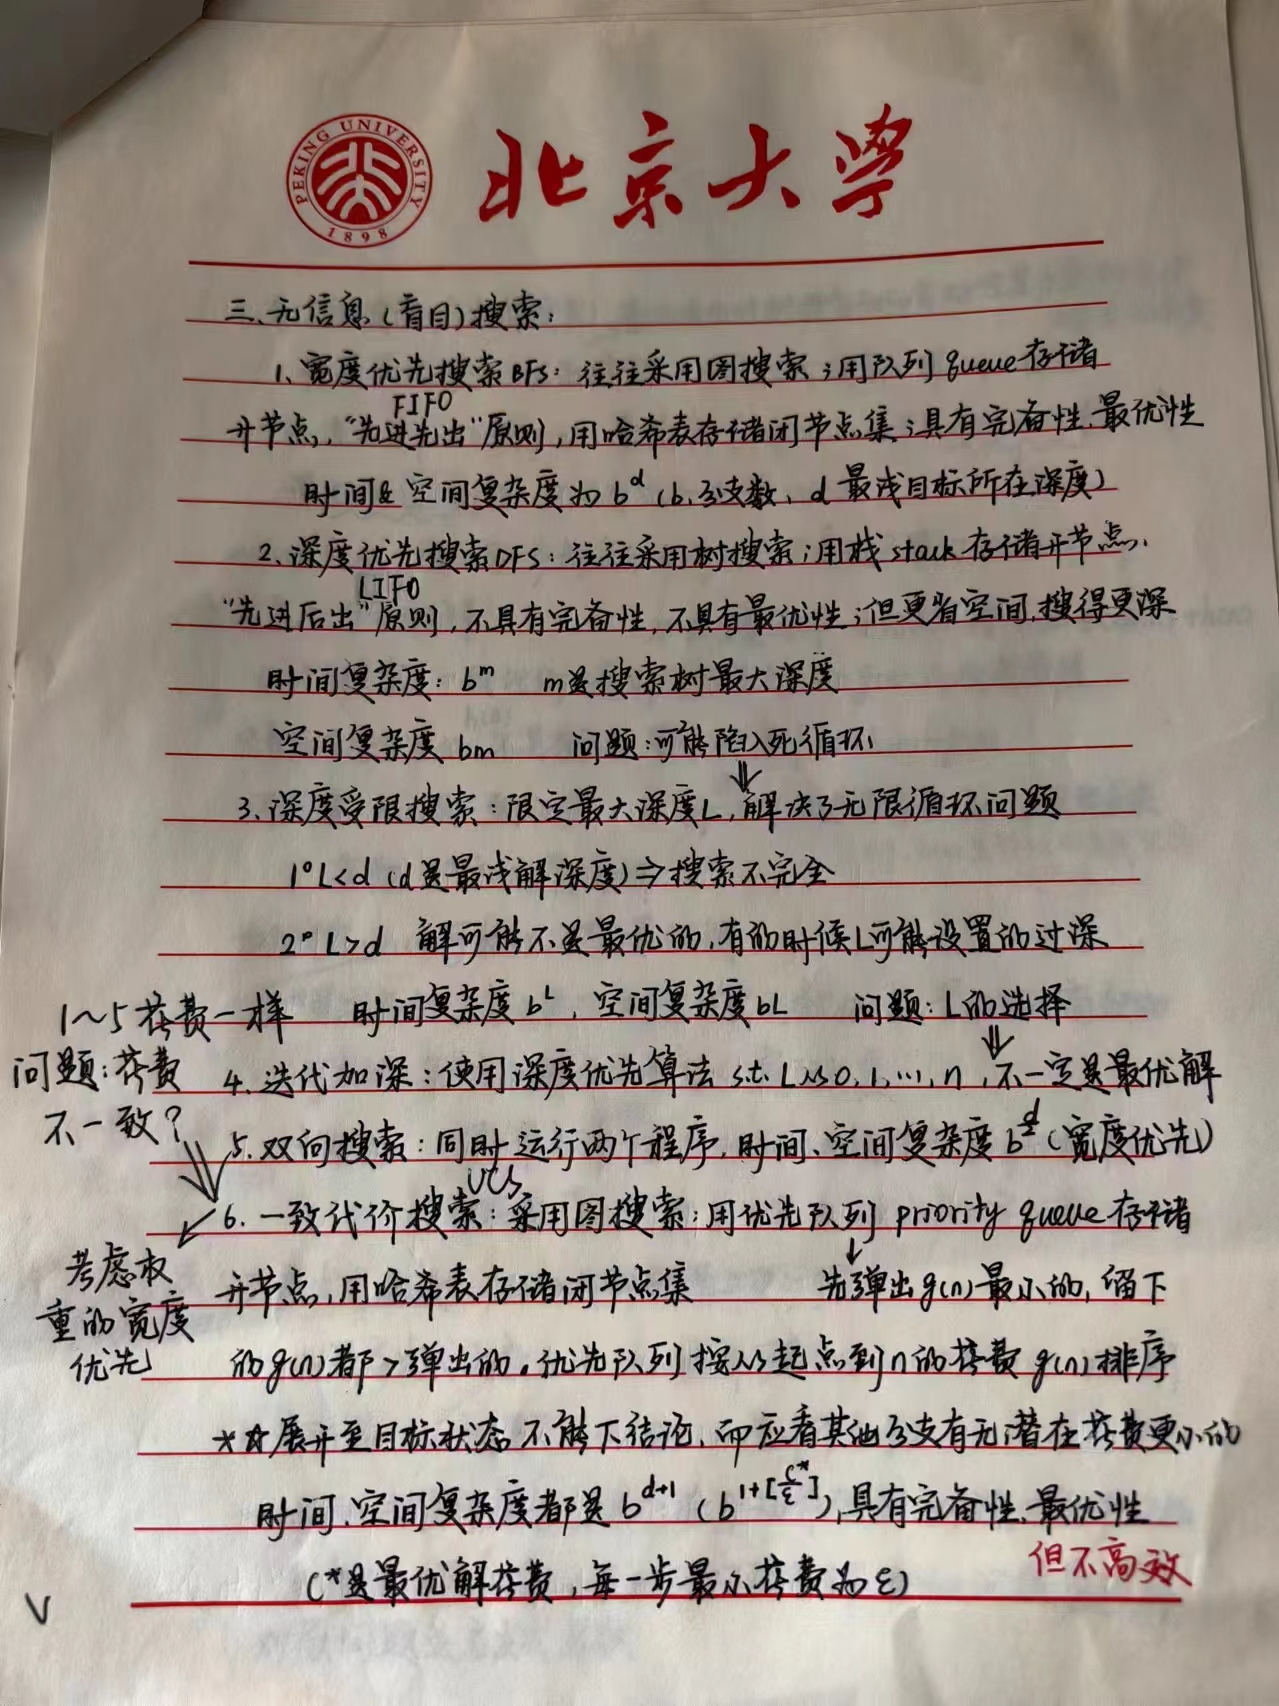 PEKING UNIVERSITY
1898
北京大学
三、无信息(盲目)搜索:
1、宽度优先搜索BFS: 往往采用图搜索;用队列queue存储
FIFO
开节点,“先进先出”原则,用哈希表存储闭节点集;具有完备性、最优性
时间&空间复杂度为 b^d (b.分支数、d 最浅目标所在深度)
2、深度优先搜索DFS: 往往采用树搜索;用栈stack存储开节点、
LIFO
“先进后出”原则,不具有完备性,不具有最优性;但更省空间,搜得更深
时间复杂度: b^m m是搜索树最大深度
空间复杂度 bm 问题:可能陷入死循环
⇓
3、深度受限搜索: 限定最大深度L,解决了无限循环问题
1° L<d (d是最浅解深度)⇒搜索不完全
2° L>d 解可能不是最优的,有的时候L可能设置的过深
时间复杂度 b^L , 空间复杂度bL 问题: L的选择
⇓
4、迭代加深: 使用深度优先算法 s.t. L从0,1,…,n ,不一定是最优解
5、双向搜索: 同时运行两个程序,时间、空间复杂度 b^(d/2) (宽度优先)
1~5花费一样
问题:花费
不一致?
UCS
6. 一致代价搜索: 采用图搜索;用优先队列 priority queue存储
开节点,用哈希表存储闭节点集 先弹出g(n)最小的,留下
的g(n)都>弹出的。优先队列按从起点到n的花费 g(n)排序
考虑权
重的宽度
优先
☆☆展开至目标状态不能下结论,而应看其他分支有无潜在花费更小的
时间、空间复杂度都是 b^(d+1) (b^(1+[C*/ε])),具有完备性、最优性
但不高效
(C*是最优解花费,每一步最小花费为ε)
√